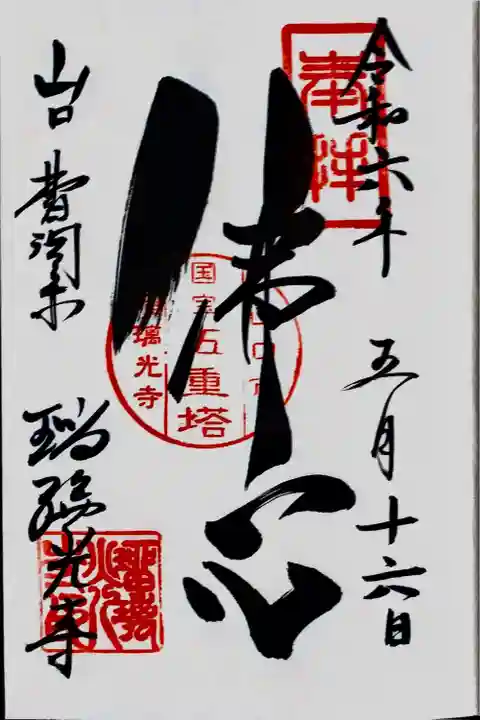 奉拝
令和六年 五月十六日
佛心
国宝 五重塔
璃光寺
山口
瑠璃光寺